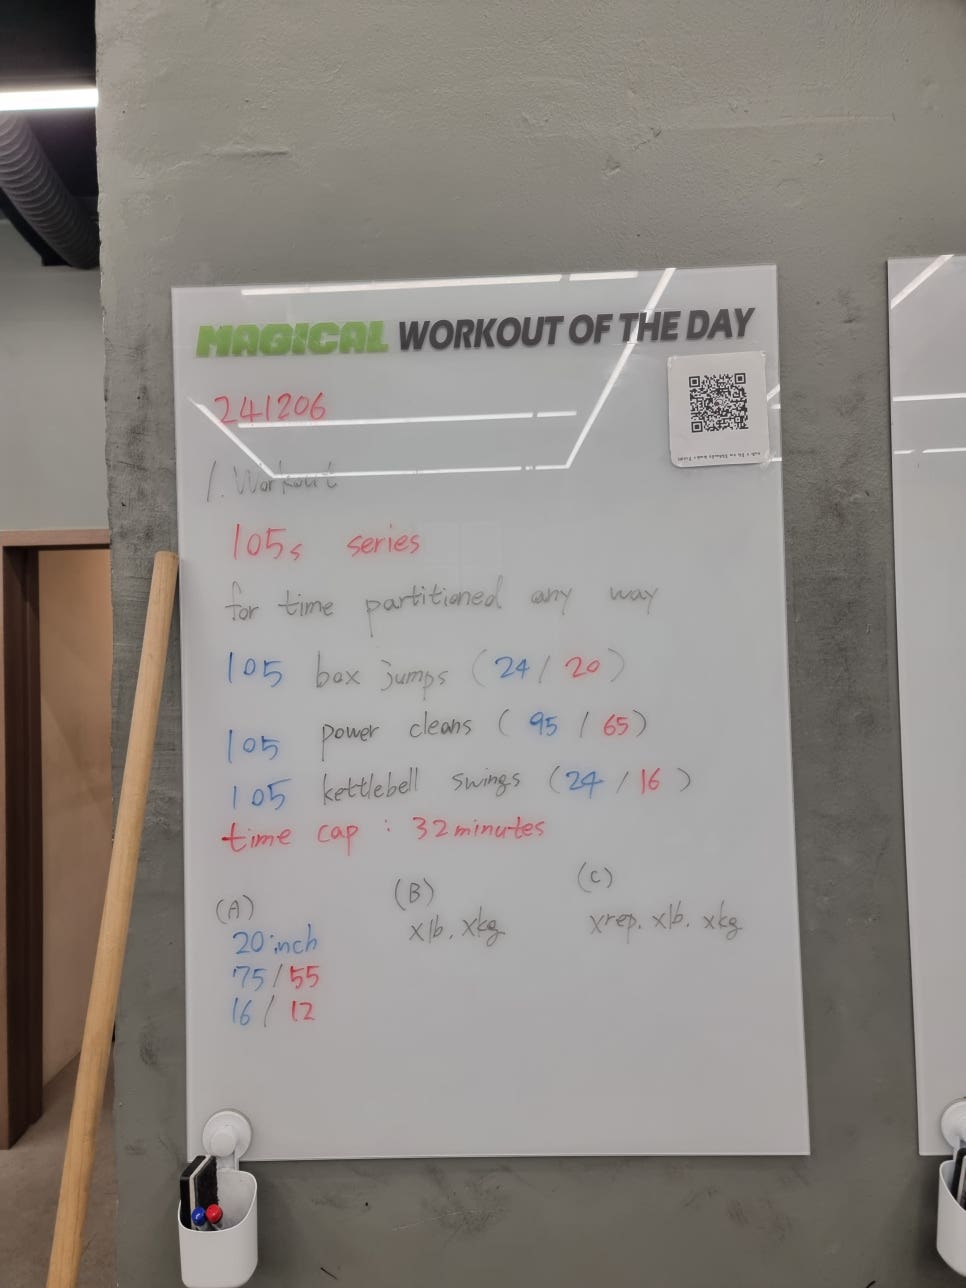 MAGICAL WORKOUT OF THE DAY
241206
1. Workout
105s series
for time partitioned any way
105 box jumps (24 / 20)
105 power cleans (95 / 65)
105 kettlebell swings (24 / 16)
time cap : 32minutes
(A) (B) (C)
20inch xlb. xkg xrep. xlb. xkg
75/55
16/12